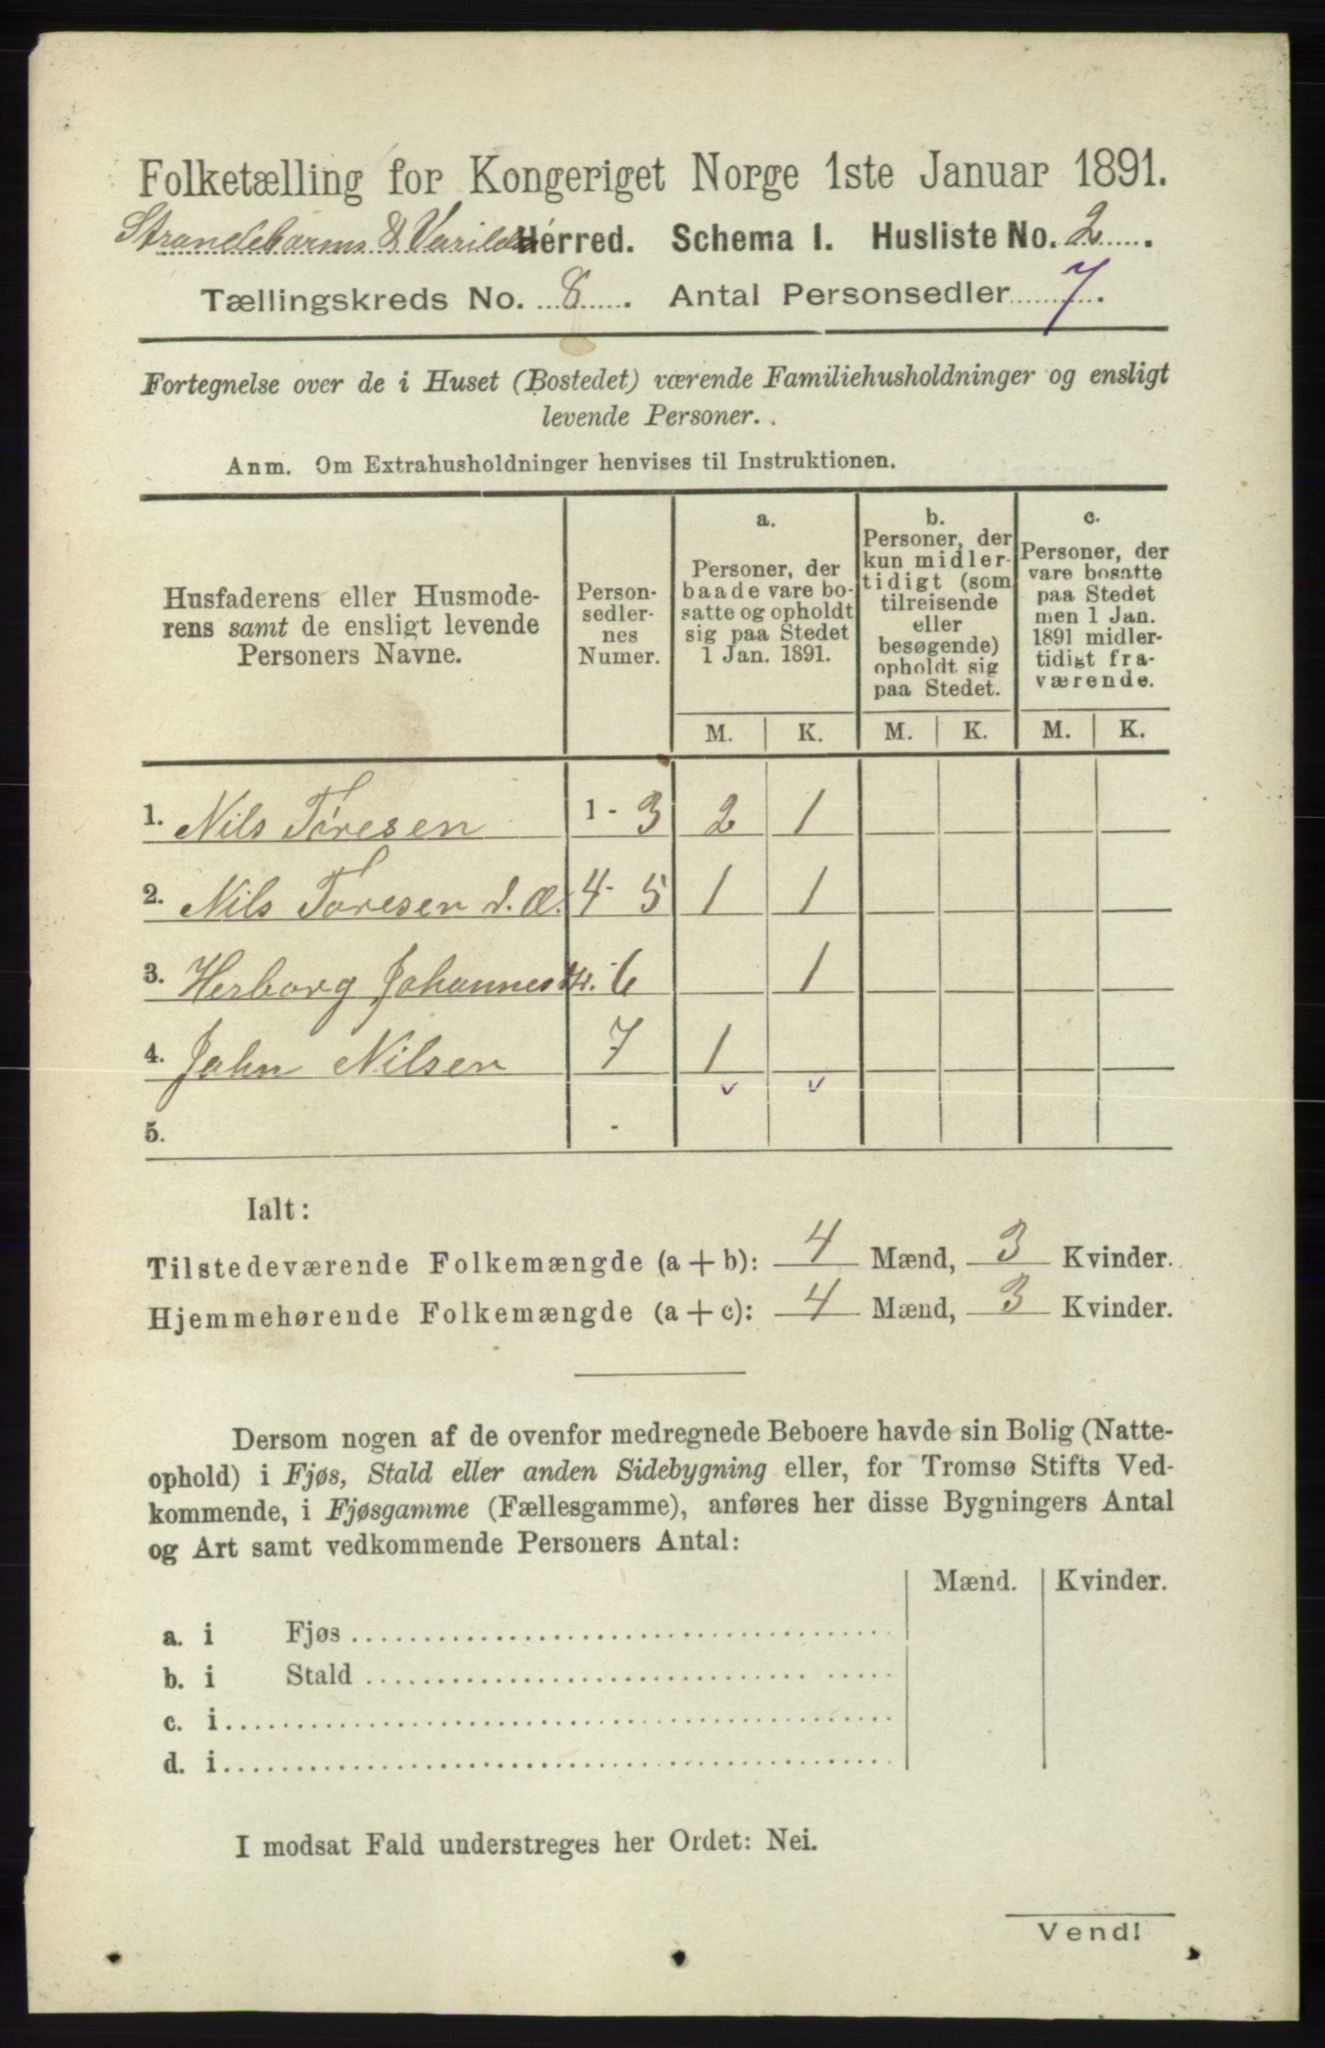 Folketælling for Kongeriget Norge 1ste Januar 1891.
Strandebarms & Varilds Herred. Schema I. Husliste No. 2.
Tællingskreds No. 8. Antal Personsedler 7.
Fortegnelse over de i Huset (Bostedet) værende Familiehusholdninger og ensligt
levende Personer.
Anm. Om Extrahusholdninger henvises til Instruktionen.
Husfaderens eller Husmode-
rens samt de ensligt levende
Personers Navne.
Person-
sedler-
nes
Numer.
a.
Personer, der
baade vare bo-
satte og opholdt
sig paa Stedet
1 Jan. 1891.
b.
Personer, der
kun midler-
tidigt (som
tilreisende
eller
besøgende)
opholdt sig
paa Stedet.
c.
Personer, der
vare bosatte
paa Stedet
men 1 Jan.
1891 midler-
tidigt fra-
værende.
M. K. M. K. M. K.
1. Nils Toresen 1 - 3 2 1
2. Nils Toresen d. Æ. 4 - 5 1 1
3. Herborg Johannesdtr. 6 1
4. John Nilsen 7 1
5. -
Ialt:
Tilstedeværende Folkemængde (a + b): 4 Mænd, 3 Kvinder.
Hjemmehørende Folkemængde (a + c): 4 Mænd, 3 Kvinder.
Dersom nogen af de ovenfor medregnede Beboere havde sin Bolig (Natte-
ophold) i Fjøs, Stald eller anden Sidebygning eller, for Tromsø Stifts Ved-
kommende, i Fjøsgamme (Fællesgamme), anføres her disse Bygningers Antal
og Art samt vedkommende Personers Antal:
Mænd. Kvinder.
a. i Fjøs
b. i Stald
c. i
d. i
I modsat Fald understreges her Ordet: Nei.
Vend!